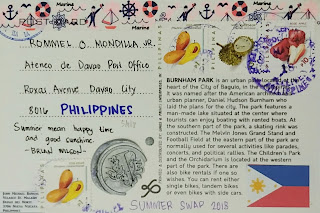 Marine
Marine
Marine
POSTCARD
ROMMIEL O. MONDILLA JR.
Ateneo de Davao Post Office
Roxas Avenue Davao City
8016 PHILIPPINES
Summer mean happy time
and good sunshine.
-BRIAN WILSON-
BURNHAM PARK is an urban park located at the
heart of the City of Baguio, in the
It was named after the American architect and
urban planner, Daniel Hudson Burnham who
laid the plans for the city. The park features a
man-made lake situated at the center where
tourists can enjoy boating with rented boats. At
the southern part of the park, a skating rink was
constructed. The Melvin Jones Grand Stand and
Football Field at the eastern part of the park are
normally used for several activities like parades,
concerts, and political rallies. The Children's Park
and the Orchidarium is located at the western
part of the park. There are
also bike rentals if one so
wishes. You can rent either
single bikes, tandem bikes
or even bikes with side cars
SUMMER SWAP 2018